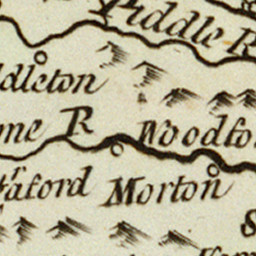 Piddle R
dleton
me R
Woodfo
afford
Morton
S